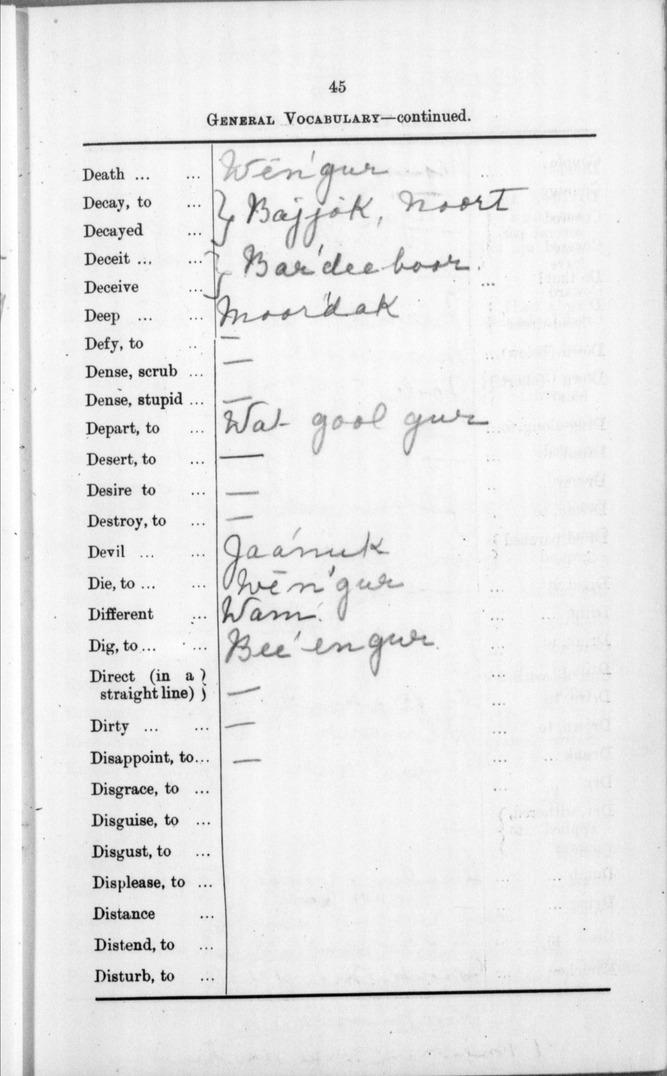 45
GENERAL VOCABULARY—continued.
Death ... ... Wēn'gur
Decay, to ... } Bajjŏk, noort
Decayed ...
Deceit ... ... } Bar'deeboor.
Deceive ...
Deep ... ... Moor'dak
Defy, to .. —
Dense, scrub ... —
Dense, stupid ... —
Depart, to ... Wat gool gur
Desert, to ... —
Desire to ... —
Destroy, to ... —
Devil ... ... Jaa'nuk
Die, to ... ... Wēn'gur
Different ... Wam.
Dig, to ... ... Bee'engur.
Direct (in a }
straight line) } —
Dirty ... ... —
Disappoint, to... —
Disgrace, to ...
Disguise, to ...
Disgust, to ...
Displease, to ...
Distance ...
Distend, to ...
Disturb, to ...